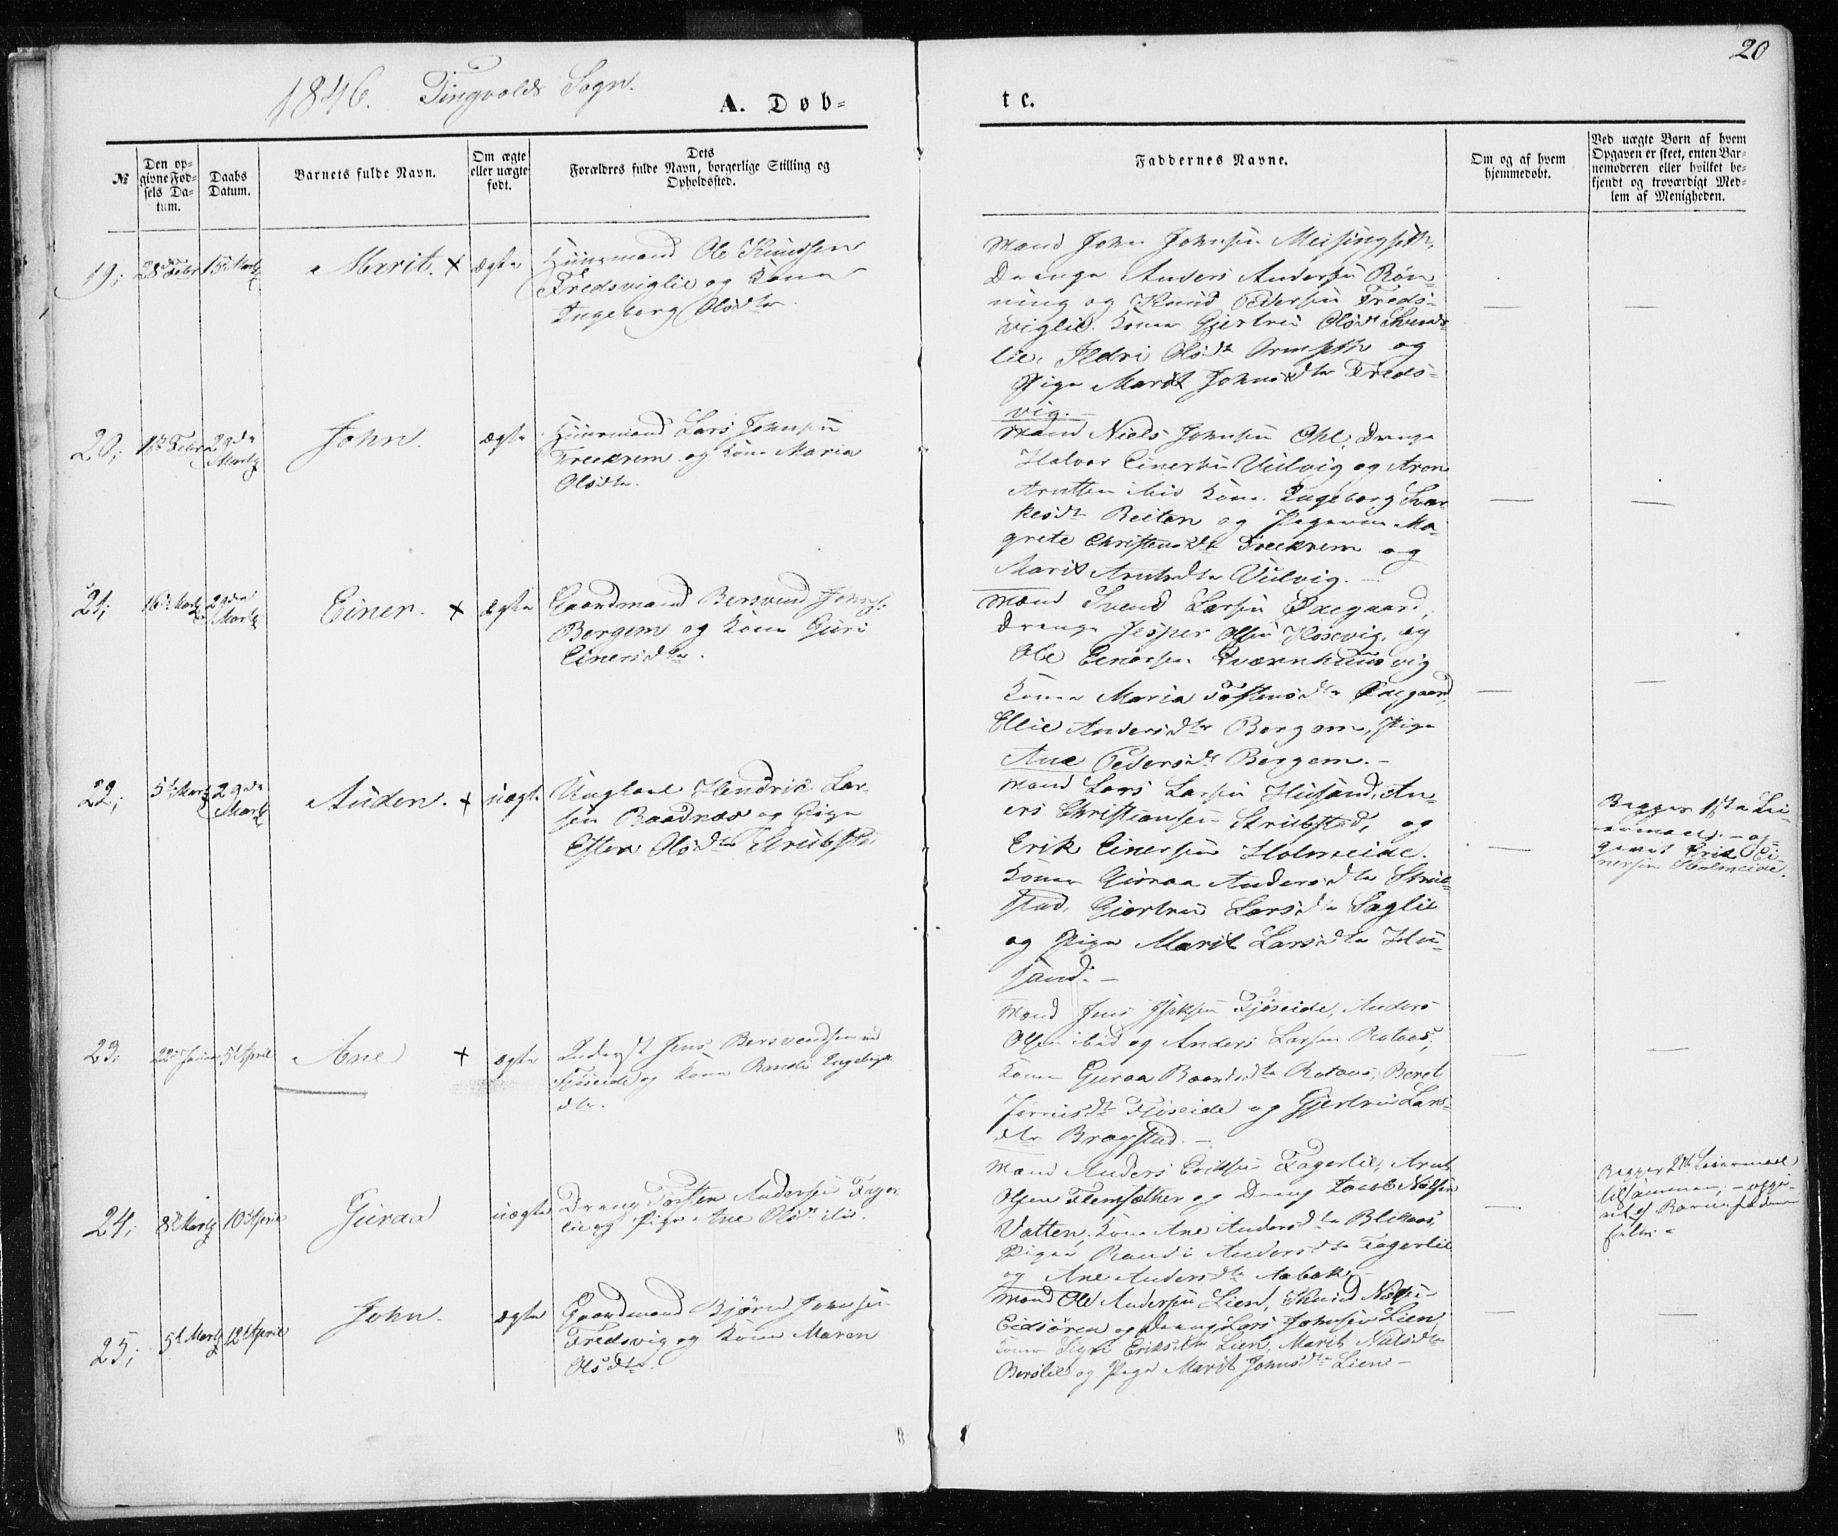 20
1846. Tingvolds Sogn.
A. Døb-
te.
№
Den op-
givne Fød-
sels Da-
tum.
Daabs
Datum.
Barnets fulde Navn.
Om ægte
eller uægte
født.
Dets
Forældres fulde Navn, borgerlige Stilling og
Opholdssted.
Faddernes Navne.
Om og af hvem
hjemmedøbt.
Ved uægte Børn af hvem
Opgaven er skeet, enten Bar-
nemoderen eller hvilket be-
kjendt og troværdigt Med-
lem af Menigheden.
19; 28de Febr 15de Martz Marit. x ægte
Huusmand Ole Knudsen
Fredsviglie og Kone
Ingeborg Olsdtr.
Mænd John Johnsen Meisingseth,
Drenge Anders Andersen Røn-
ning og Knud Pedersen Freds-
viglie. Koner Gjertru Olsdtr Svends-
lie, Ildri Olsdtr Ormseth og
Pige Marit Johnsdtr Freds-
vig. —
20; Febr 29de Martz John. ægte
Huusmand Lars Johnsen
Freekrem og Kone Maria
Olsdtr.
Mand Niels Johnsen Ohl, Drenge
Halvor Einersen Vulvig og Aren
Arntsen ibid Kone Ingeborg Sver-
kesdtr Reiten og Pigerne Ma-
grete Christensdtr Freekrem og
Marit Arntsdtr Vulvig. —
21; 16de Martz 29de Martz Einer. x ægte
Gaardmand Bersvend Johns.
Bergem og Kone Guri
Einersdtr.
Mænd Svend Larsen Ødegaard,
Drenge Jesper Olsen Kosevig, og
Ole Einersen Qværnhuusvig
Koner Maria Tostensdtr Ødegaard,
Ellie Andersdtr Bergem, Pige
Ane Pedersdtr Bergem. —
22; 5te Martz 29de Martz Auden. x uægte
Ungkarl Hendrik Lar-
sen Raadnæs og Pige
Ester Olsdtr Strubstad
Mænd Lars Larsen Husand, An-
ers Christiansen Strubstad, og
Erik Einersen Holmeide.
Koner Guraa Andersdtr Strub-
stad, Gjertru Larsdtr Saglie
og Pige Marit Larsdtr Hu-
sand. —
Begges 1ste Lei-
ermaal. — op-
givet Erik Ei-
nersen Holmeide.
23; 22de Januar 5te April Ane x ægte
Inderst Jens Bersvendsen
Fjøseide og Kone Randi Engebrigts
dtr.
Mænd Jens Fjøseide, Anders
Olsen ibid og Anders Larsen Rotaas,
Koner Guraa Baardsdtr Rotaas, Beret
Jørnsdtr Fjøseide og Gjertru Lars-
dtr Bragstad. —
24; 8de Martz 10de April Guraa uægte
Dreng Torsten Andersen Fager-
lie og Pige Ane Olsdtr ibid
Mænd Anders Eriksen Fagerlie, Arnt
Olsen Flemsæther og Dreng Jacob Nelsen
Vatten, Kone Ane Andersdtr Blikaas,
Piger Randi Andersdtr Fagerlie
og Ane Andersdtr Aabak.
Begges 2det Leiermaal
tilsammen, — opgi-
vet af Barnefaderen
selv. —
25; 5te Martz 12te April John. ægte
Gaardmand Bjørn Johnsen
Fredsvig og Kone Maren
Olsdtr.
Mænd Ole Andersen Lien, Knud Nelsen
Eidsøren og Dreng Lars Johnsen Lien,
Koner Eriksdtr Lien, Marit Nielsdtr
Berslie og Pige Marit Johnsdtr Lien —